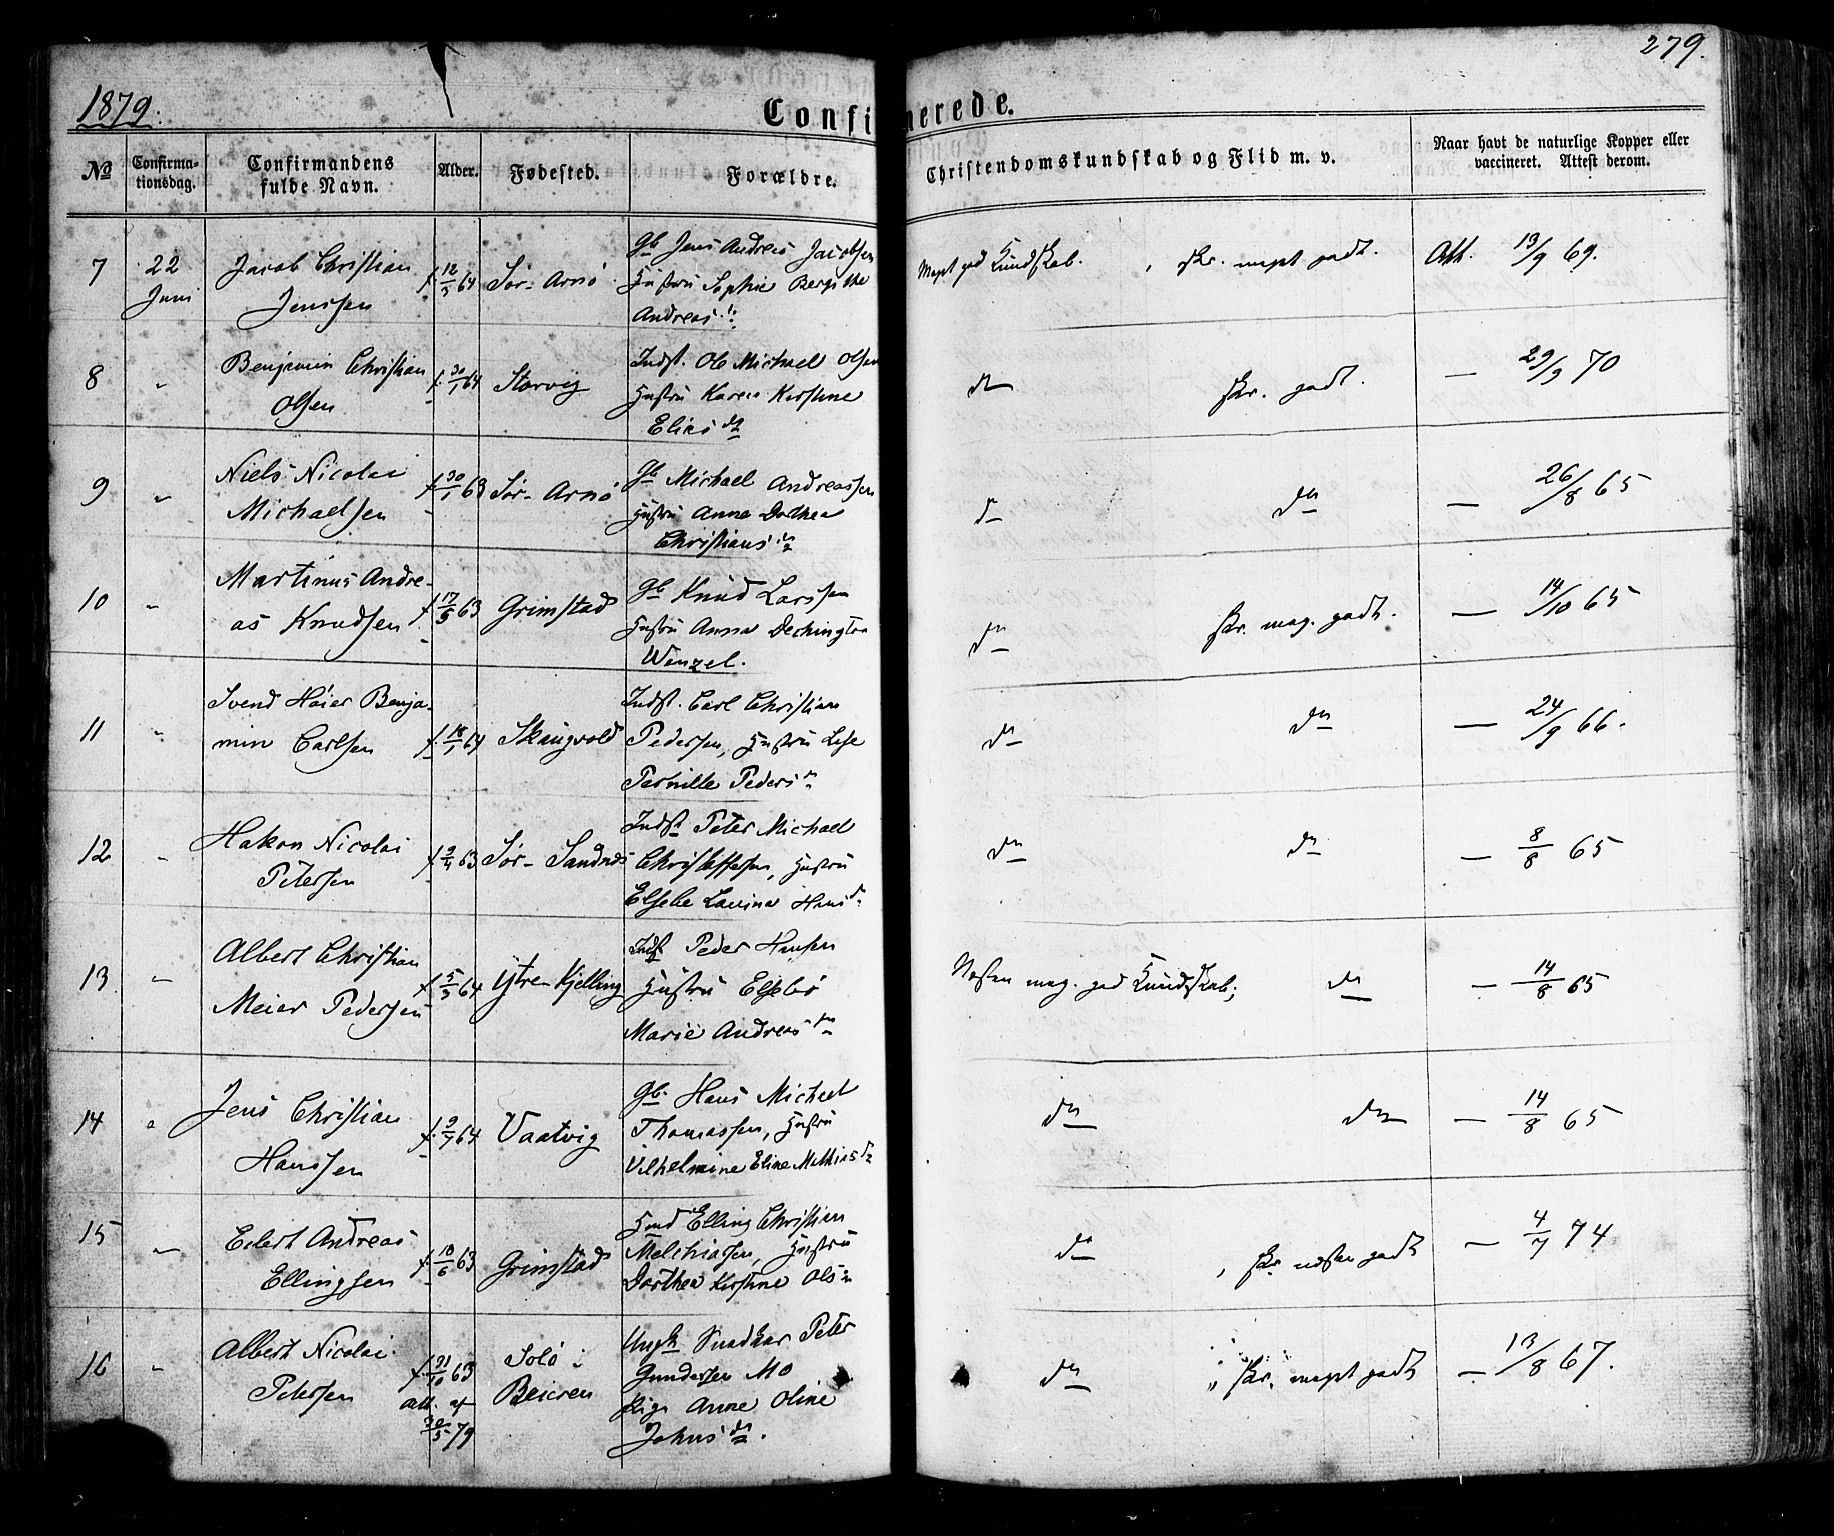 279.
1879.
Confirmerede.
No
Confirma-
tionsdag.
Confirmandens
fulde Navn.
Alder.
Fødested.
Forældre.
Christendomskundskab og Flid m. v.
Naar havt de naturlige Kopper eller
vaccineret. Attest derom.
7
22
Juni
Jacob Christian
Jenssen
f. 12/3 64
Sør-Arnø
Gb Jens Andreas Jacobsen
Hustru Sophie Bergithe
Andreas
Meget god Kundskab. , skr. meget godt.
Att. 13/9 69.
8
"
Benjamin Christian
Olsen
f. 30/1 64
Storvig
Indst. Ole Michael Olsen
Hustru Karen Kirstine
Elias dt
do
skr. godt.
— 29/9 70
9
"
Niels Nicolai
Michaelsen
f. 30/1 63
Sør-Arnø
Gb Michael Andreassen
Hustru Anne Dorthea
Christians
do
do
— 26/8 65
10
"
Martinus Andre-
as Knudsen
f. 17/5 63
Grimstad
Gb Knud Larssen
Hustru Anna
Wenzel.
do
skr. meg. godt.
— 14/10 65
11
"
Svend Høier Benja-
min Carlsen
f. 18/1 64
Skaugvold
Indst. Carl Christian
Pedersen, Hustru Lise
Pernille Peders
do
do
— 24/9 66.
12
"
Hakon Nicolai
Petersen
f. 9/4 63
Sør-Sandnes
Indst Peter Michael
Christoffersen, Hustru
Elsebe Lavina Hans
do
do
— 8/8 65
13
"
Albert Christian
Meier Pedersen
f. 5/3 64
Ytre-Kjelling
Indst Peder Hansen
Hustru Elsebe
Marie Andreas
Næsten meg. god Kundskab;
do
— 14/8 65
14
"
Jens Christian
Hanssen
f. 9/7 64
Vaatvig
Gb. Hans Michael
Thomassen, Hustru
Vilhelmine Eline Mathias
do
do
— 14/8 65
15
"
Edert Andreas
Ellingsen
f. 18/6 63
Grimstad
Elling Christian
Melchiorsen, Hustru
Dorthea Kirstine Ols
do
, skr. næsten godt
— 4/7 74
16
"
Albert Nicolai
Petersen
f. 21/10 63
att. af
30/5 79
Solø i
Beieren
Ungk. Snedker Peter
Gundersen Mo
Pige Anne Oline
Johns dt.
do
" skr. meget godt
— 13/8 67.